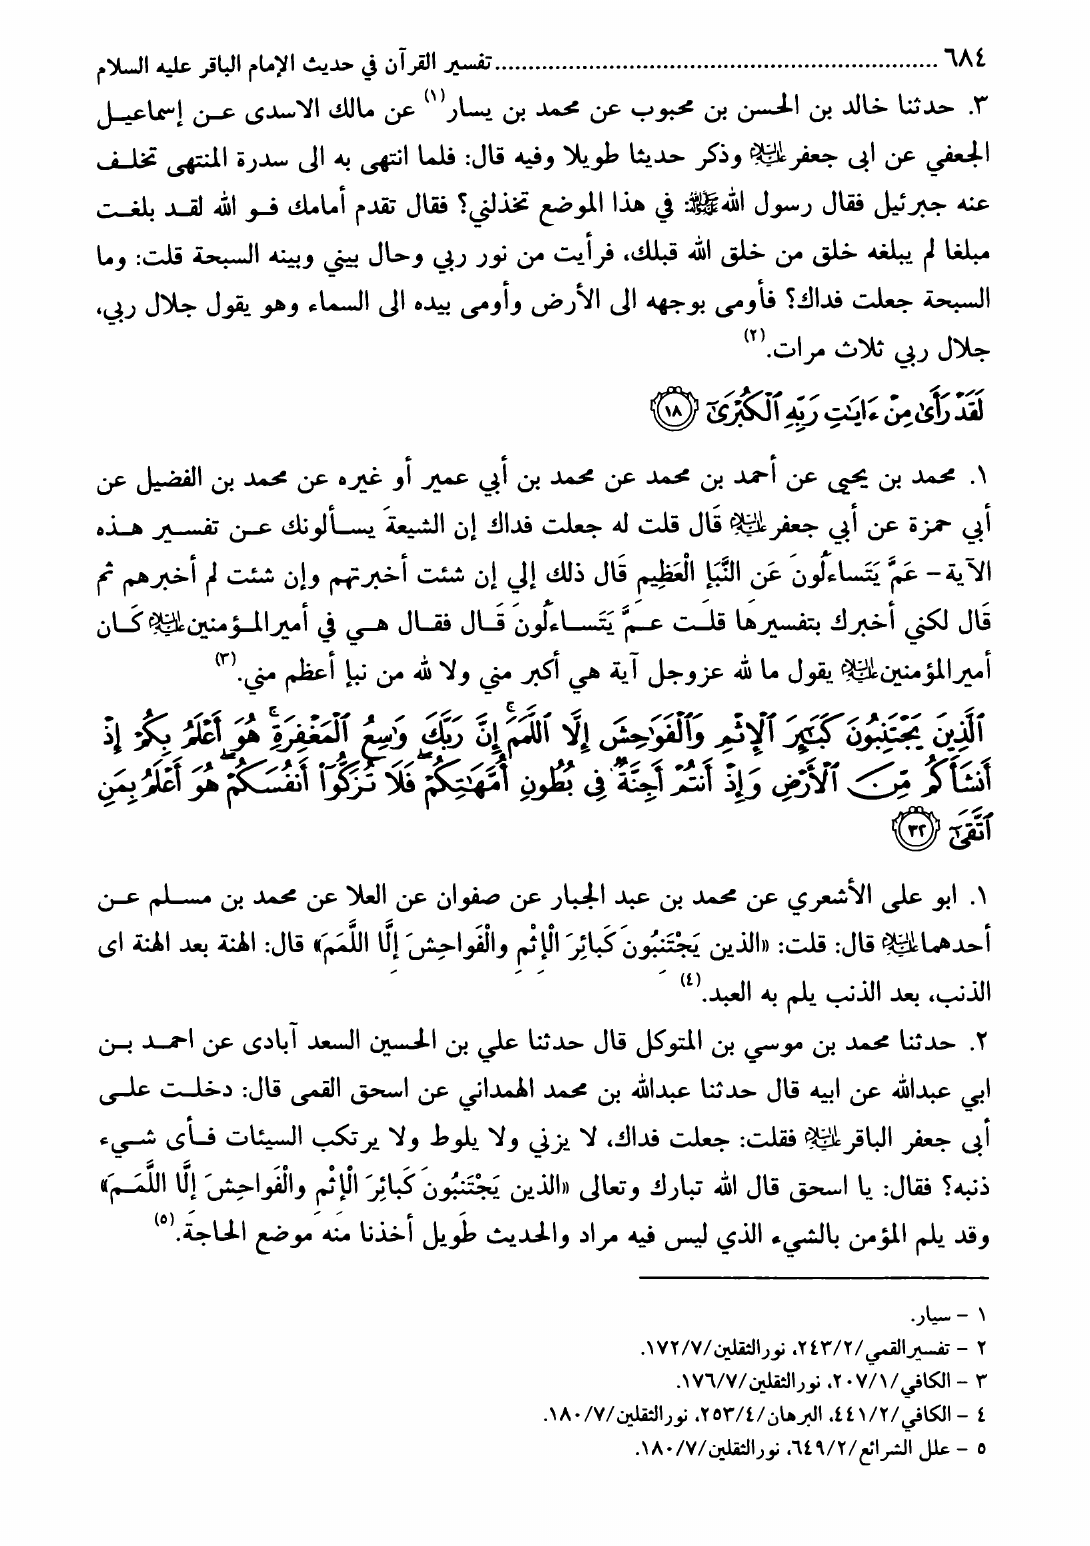 ٦٨٤ .......... تفسير القرآن في حديث الإمام الباقر عليه السلام
٣. حدثنا خالد بن الحسن بن محبوب عن محمد بن يسار(١) عن مالك الاسدى عن إسماعيل
الجعفي عن ابى جعفر عليه السلام وذكر حديثا طويلا وفيه قال: فلما انتهى به الى سدرة المنتهى تخلف
عنه جبرئيل فقال رسول الله ﷺ: في هذا الموضع تخذلني؟ فقال تقدم أمامك فو الله لقد بلغت
مبلغا لم يبلغه خلق من خلق الله قبلك، فرأيت من نور ربي وحال بيني وبينه السبحة قلت: وما
السبحة جعلت فداك؟ فأومى بوجهه الى الأرض وأومى بيده الى السماء وهو يقول جلال ربي،
جلال ربي ثلاث مرات.(٢)
لَقَدْ رَأَىٰ مِنْ ءَايَٰتِ رَبِّهِ ٱلْكُبْرَىٰٓ ١٨
١. محمد بن يحيى عن أحمد بن محمد عن محمد بن أبي عمير أو غيره عن محمد بن الفضيل عن
أبي حمزة عن أبي جعفر عليه السلام قَال قلت له جعلت فداك إن الشيعةَ يسألونك عن تفسير هذه
الآية - عَمَّ يَتَساءلُونَ عَن النَّبَإ الْعَظِيمِ قَال ذلك إلي إن شئت أخبرتهم وإن شئت لم أخبرهم ثم
قَال لكني أخبرك بتفسيرها قلت عمَّ يَتَساءلُونَ قَال فقال هي في أمير المؤمنين عليه السلام كَان
أمير المؤمنين عليه السلام يقول ما لله عزوجل آية هي أكبر مني ولا لله من نبإ أعظم مني.(٣)
ٱلَّذِينَ يَجْتَنِبُونَ كَبَٰٓئِرَ ٱلْإِثْمِ وَٱلْفَوَٰحِشَ إِلَّا ٱللَّمَمَ ۚ إِنَّ رَبَّكَ وَٰسِعُ ٱلْمَغْفِرَةِ ۚ هُوَ أَعْلَمُ بِكُمْ إِذْ
أَنشَأَكُم مِّنَ ٱلْأَرْضِ وَإِذْ أَنتُمْ أَجِنَّةٌ فِى بُطُونِ أُمَّهَٰتِكُمْ ۖ فَلَا تُزَكُّوٓا۟ أَنفُسَكُمْ ۖ هُوَ أَعْلَمُ بِمَنِ
ٱتَّقَىٰٓ ٣٢
١. ابو على الأشعري عن محمد بن عبد الجبار عن صفوان عن العلا عن محمد بن مسلم عن
أحدهما عليه السلام قال: قلت: «الذين يَجْتَنِبُونَ كَبائِرَ الْإِثْمِ والْفَواحِشَ إِلَّا اللَّمَمَ» قال: الهنة بعد الهنة اى
الذنب، بعد الذنب يلم به العبد.(٤)
٢. حدثنا محمد بن موسي بن المتوكل قال حدثنا علي بن الحسين السعد آبادى عن احمد بن
ابي عبدالله عن ابيه قال حدثنا عبدالله بن محمد الهمداني عن اسحق القمى قال: دخلت على
أبى جعفر الباقر عليه السلام فقلت: جعلت فداك، لا يزني ولا يلوط ولا يرتكب السيئات فأى شيء
ذنبه؟ فقال: يا اسحق قال الله تبارك وتعالى «الذين يَجْتَنِبُونَ كَبائِرَ الْإِثْمِ والْفَواحِشَ إِلَّا اللَّمَمَ»
وقد يلم المؤمن بالشيء الذي ليس فيه مراد والحديث طويل أخذنا منه موضع الحاجة.(٥)
١ - سيار.
٢ - تفسير القمي/٢٤٣/٢، نور الثقلين/١٧٢/٧.
٣ - الكافي/٢٠٧/١، نور الثقلين/١٧٦/٧.
٤ - الكافي/٤٤١/٢، البرهان/٢٥٣/٤، نور الثقلين/١٨٠/٧.
٥ - علل الشرائع/٦٤٩/٢، نور الثقلين/١٨٠/٧.